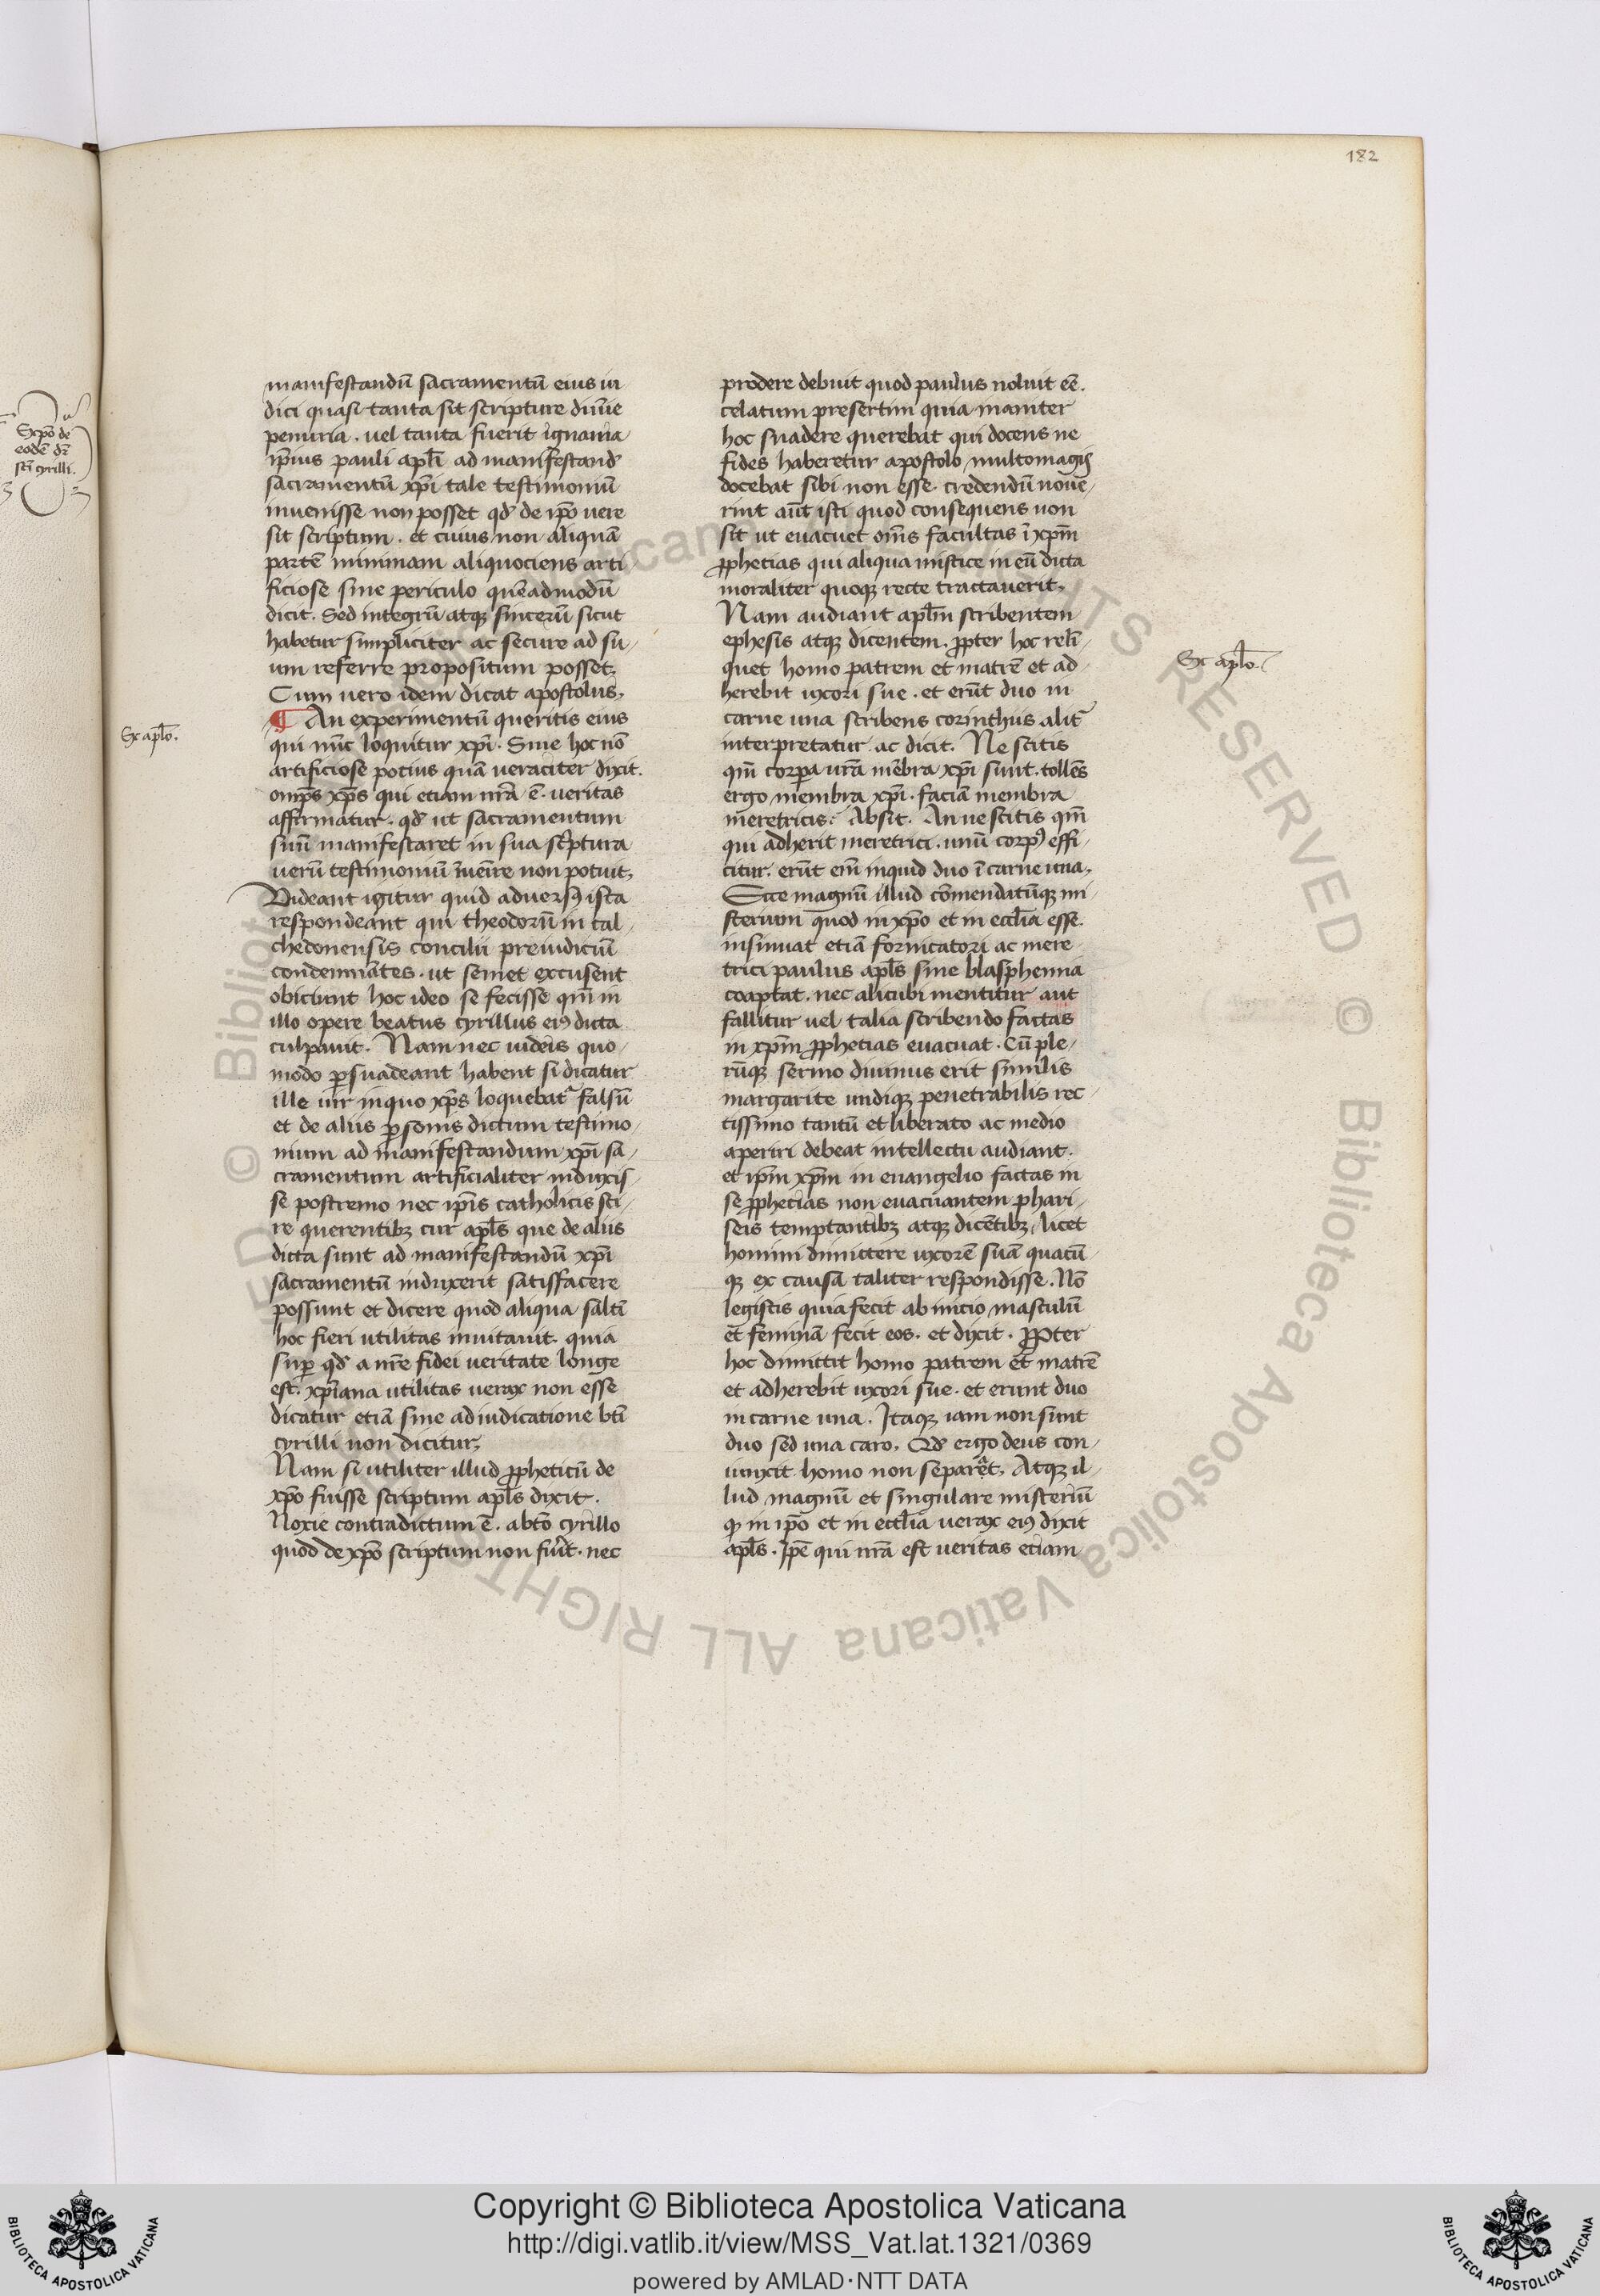 182
Scpō de
eodē dr̄
scī cyrilli.
manifestandū sacramentū eius in
dici quasi tanta sit scripture diuīe
penuria . uel tanta fuerit ignauia
ip̄ius pauli apl̄i ad manifestand
sacramentū xp̄i tale testimoniū
inuenisse non posset qd̄ de ip̄o uere
sit scriptum . et cuius non aliquā
partē minimam aliquociens arti
ficiose sine periculo quēadmodū
dicit . Sed integrū atq; sincerū sicut
habetur simpliciter ac secure ad su
um referre propositum posset,
Cum uero idem dicat apostolus,
¶ An experimentū queritis eius
qui nūc loquitur xp̄i . Sine hoc nō
artificiose pocius quā ueraciter dixit .
om̄ps xp̄s qui etiam nr̄a ē . ueritas
affirmatur . qd̄ ut sacramentum
suū manifestaret in sua scriptura
uerū testimoniū īuenire non potuit,
Videant igitur quid aduersꝰ ista
respondeant qui theodorū in cal
chedonensis concilii preiudiciū
condemnātes . ut semet excusent
obiciunt hoc ideo se fecisse qm̄ in
illo opere beatus cyrillus eiꝰ dicta
culpauit . Nam nec iudeis quo
modo ꝑsuadeant habent si dicatur
ille uir in quo xp̄s loquebatr falsū
et de aliis ꝑsonis dictum testimo
nium ad manifestandum xp̄i sa
cramentum artificialiter induxis
se postremo nec ip̄is catholicis sci
re querentibꝫ cur apl̄s que de aliis
dicta sunt ad manifestandū xp̄i
sacramentū induxerit satisfacere
possunt et dicere quod aliqua saltī
hoc fieri utilitas inuitauit . quia
suꝑ qd̄ a nr̄e fidei ueritate longe
est . xp̄iana utilitas uerax non esse
dicatur etiā sine adiudicatione bt̄i
cyrilli non dicitur,
Nam si utiliter illud ꝓpheticū de
xp̄o fuisse scriptum apl̄s dixit .
Noxie contradictum ē . a btō cyrillo
quod de xp̄o scriptum non fuerit . nec
Sc aplō .
prodere debuit quod paulus noluit eē .
celatum presertim quia inaniter
hoc suadere querebat qui docens ne
fides haberetur apostolo multomagis
docebat sibi non esse . credendū nouē
rint aūt isti quod consequens non
sit ut euacuet om̄s facultas ī xp̄m
ꝓphetias qui aliqua mistice in eū dicta
moraliter quoq; recte tractauerit,
Nam audiant apl̄m scribentem
ephesis atq; dicentem . ꝓpter hoc reli
quet homo patrem et matrē et ad
herebit uxori sue . et erūt duo in
carne una scribens corinthiis alitr
interpretatur ac dicit . Ne scitis
qm̄ corpora ur̄a mēbra xp̄i sunt . tollēs
ergo membra xp̄i . faciā membra
meretricis : Absit . An nescitis qm̄
qui adherit meretrici . unū corpꝰ effi
citur . erūt em̄ inquid duo ī carne una,
Ecce magnū illud cōmendatūq; mi
sterium quod in xp̄o et in eccl̄ia esse
insinuat etiā fornicatori ac mere
trici paulus apl̄s sine blasphemia
coaptat . nec alicubi mentitur aut
fallitur uel talia scribendo factas
in xp̄m ꝓphetias euacuat . Cū ple
rūq; sermo diuinus erit similis
margarite undiq; penetrabilis rec
tissimo tantū et liberato ac medio
aperiri debeat intellectu audiant .
et ip̄m xp̄m in euangelio factas in
se ꝓphetias non euacuantem phari
seis temptantibꝫ atq; dicētibꝫ, licet
homini dimittere uxorē suā quacū
q; ex causa taliter respondisse . Nō
legistis quia fecit ab inicio masculū
et feminā fecit eos . et dixit . Ꝓpter
hoc dimittit homo patrem et matrē
et adherebit uxori sue . et erunt duo
in carne una . Itaq; iam non sunt
duo sed una caro, Qd̄ ergo deus con
iunxit homo non separet, Atq; il
lud magnū et singulare misteriū
qd̄ in ip̄o et in eccl̄ia uerax eiꝰ dixit
apl̄s . Ip̄e qui nr̄a est ueritas etiam
Sc aplō .
© Biblioteca Apostolica Vaticana ALL RIGHTS RESERVED
Copyright © Biblioteca Apostolica Vaticana
http://digi.vatlib.it/view/MSS_Vat.lat.1321/0369
powered by AMLAD·NTT DATA
BIBLIOTECA APOSTOLICA VATICANA
BIBLIOTECA APOSTOLICA VATICANA